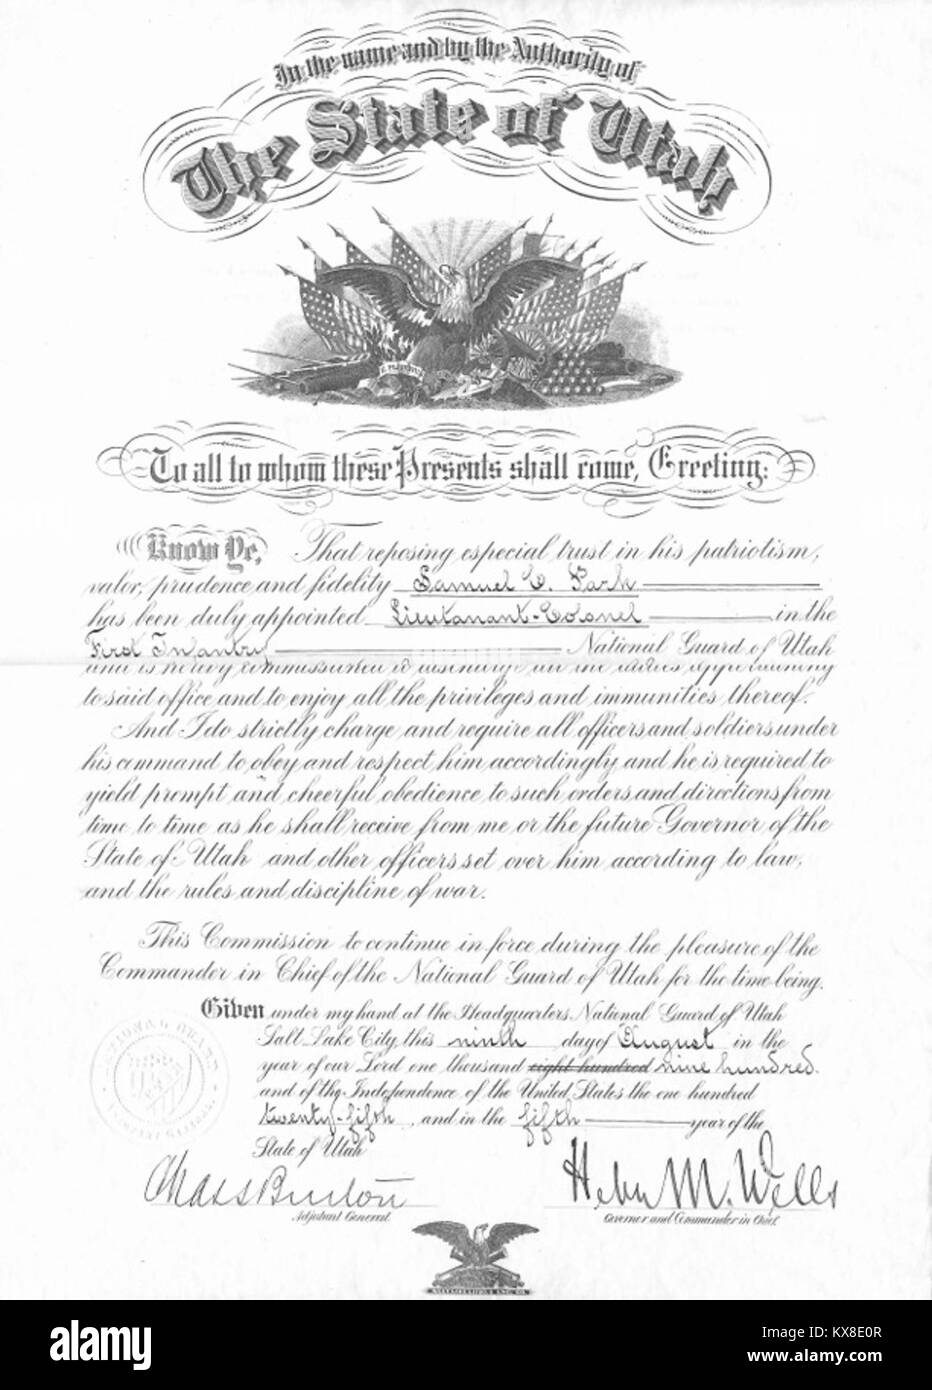 In the name and by the Authority of
The State of Utah,
To all to whom these Presents shall come, Greeting:
Know Ye, That reposing especial trust in his patriotism,
valor, prudence and fidelity Samuel C. Park
has been duly appointed Lieutanant-Colonel in the
First Infantry National Guard of Utah
and is hereby commissioned to discharge all the duties appertaining
to said office and to enjoy all the privileges and immunities thereof.
And I do strictly charge and require all officers and soldiers under
his command to obey and respect him accordingly and he is required to
yield prompt and cheerful obedience to such orders and directions from
time to time as he shall receive from me or the future Governor of the
State of Utah and other officers set over him according to law,
and the rules and discipline of war.
This Commission to continue in force during the pleasure of the
Commander in Chief of the National Guard of Utah for the time being.
Given under my hand at the Headquarters National Guard of Utah
Salt Lake City, this ninth day of August in the
year of our Lord one thousand eight hundred nine hundred.
and of the Independence of the United States the one hundred
twenty-fifth, and in the fifth year of the
State of Utah
Chas S Burton Heber M. Wells
Adjutant General. Governor and Commander in Chief.
alamy
Image ID: KX8E0R
www.alamy.com